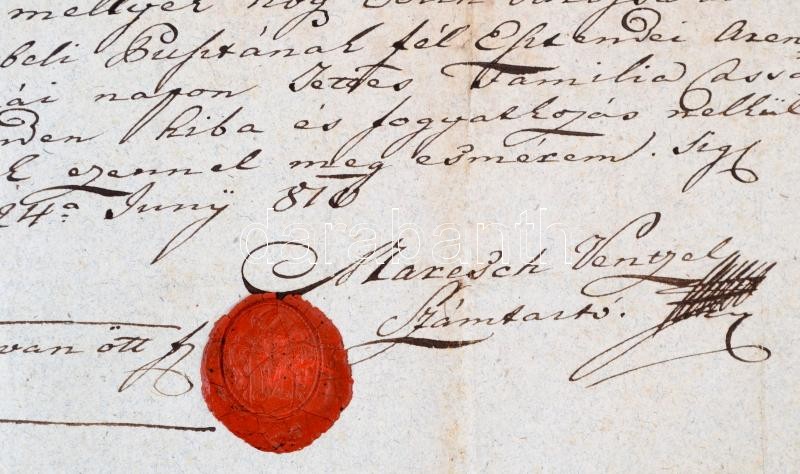 mellyek hog
beli Pusztának fél Esztendei Aren
ái napon Tettes Familia Cassa
nden hiba és fogyatkozás nélkül
k ezennel meg esmérem. Sig
24a Junÿ 81
Maresch Ventzel
Számtartó.
van ött f
darabanth